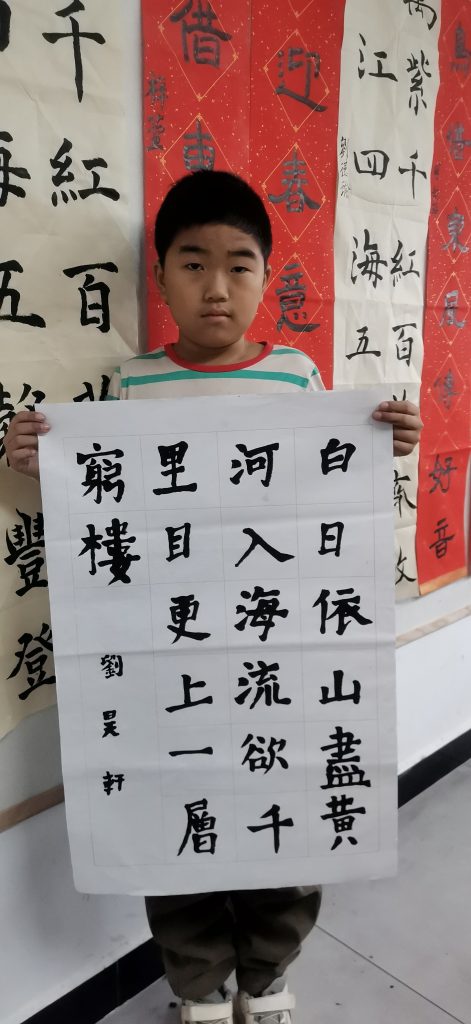 借東
好音
紫千紅百
江四海五
迎春意
借東
千紅百
海五
豐登
白日依山盡黄
河入海流欲千
里目更上一層
窮樓
劉昊軒